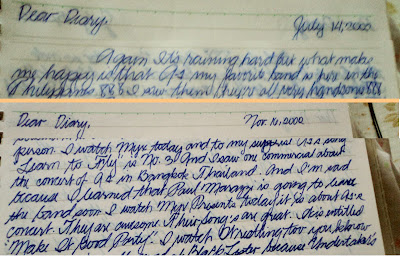 Dear Diary,
July 14, 2000
Again It's raining hard but what make
me happy is that A1 my favorite band is here in the
Philippines. I saw them, they're all very handsome
Dear Diary,
Nov. 16, 2000
person. I watch Myx today and to my A1's song
"Learn to Fly" is No. 3. And I saw one commercial about
the concert of A1 in Bangkok Thailand. And I'm sad
because I learned that Paul Marazzi is going to leave
the band soon. I watch Myx Presents today it is about A1's
concert. They are awesome. Their songs are great. It is entitled
Make It Good Party". I watch too you know
because Undertaker's